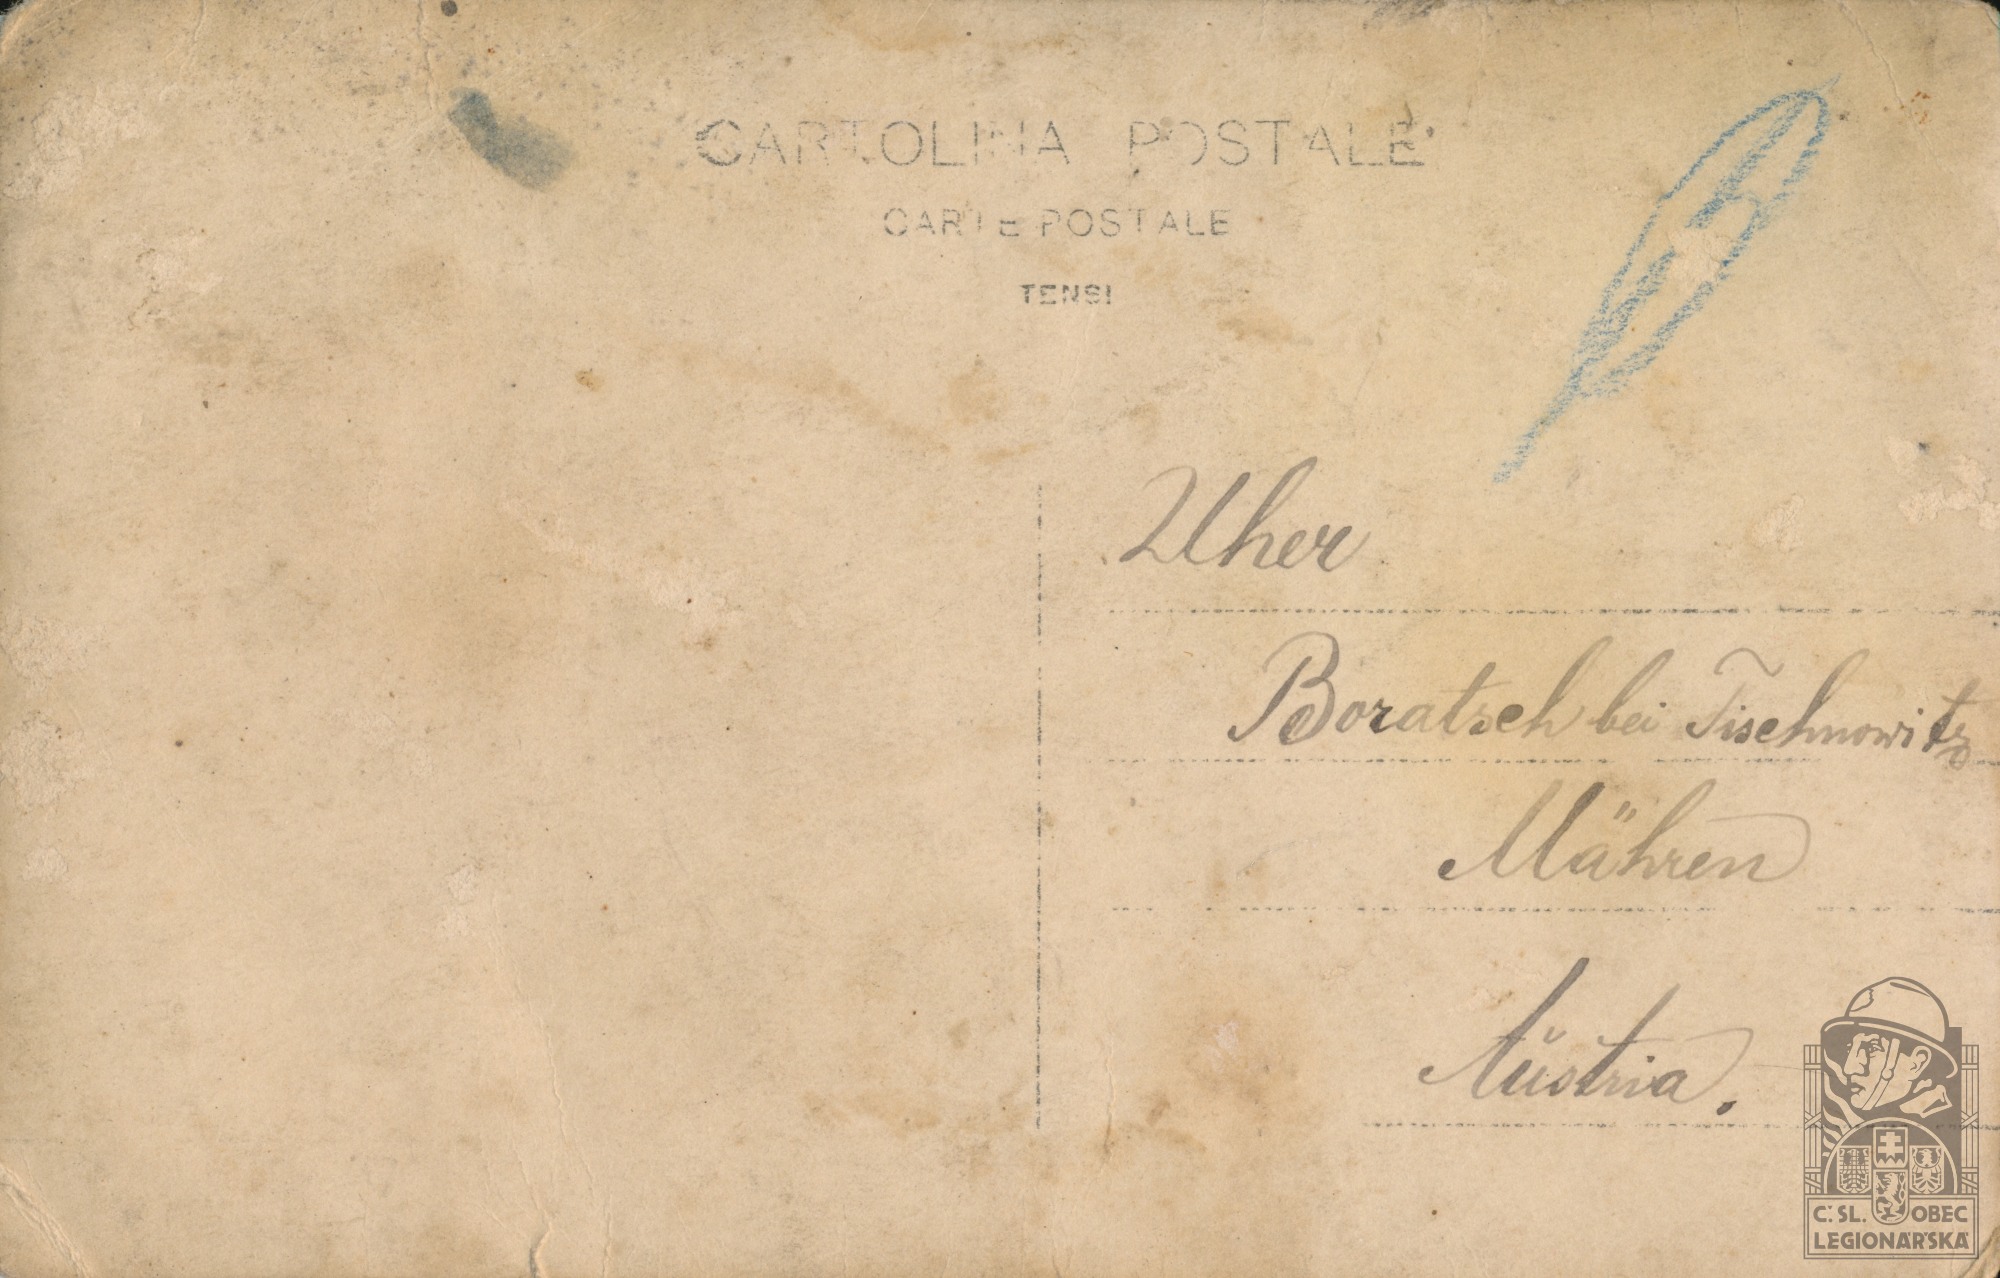 CARTOLINA POSTALE
CARTE POSTALE
TENSI
Uher
Boratsch bei Tischnowitz
Mähren
Austria.
Č.SL. OBEC
LEGIONÁŘSKÁ